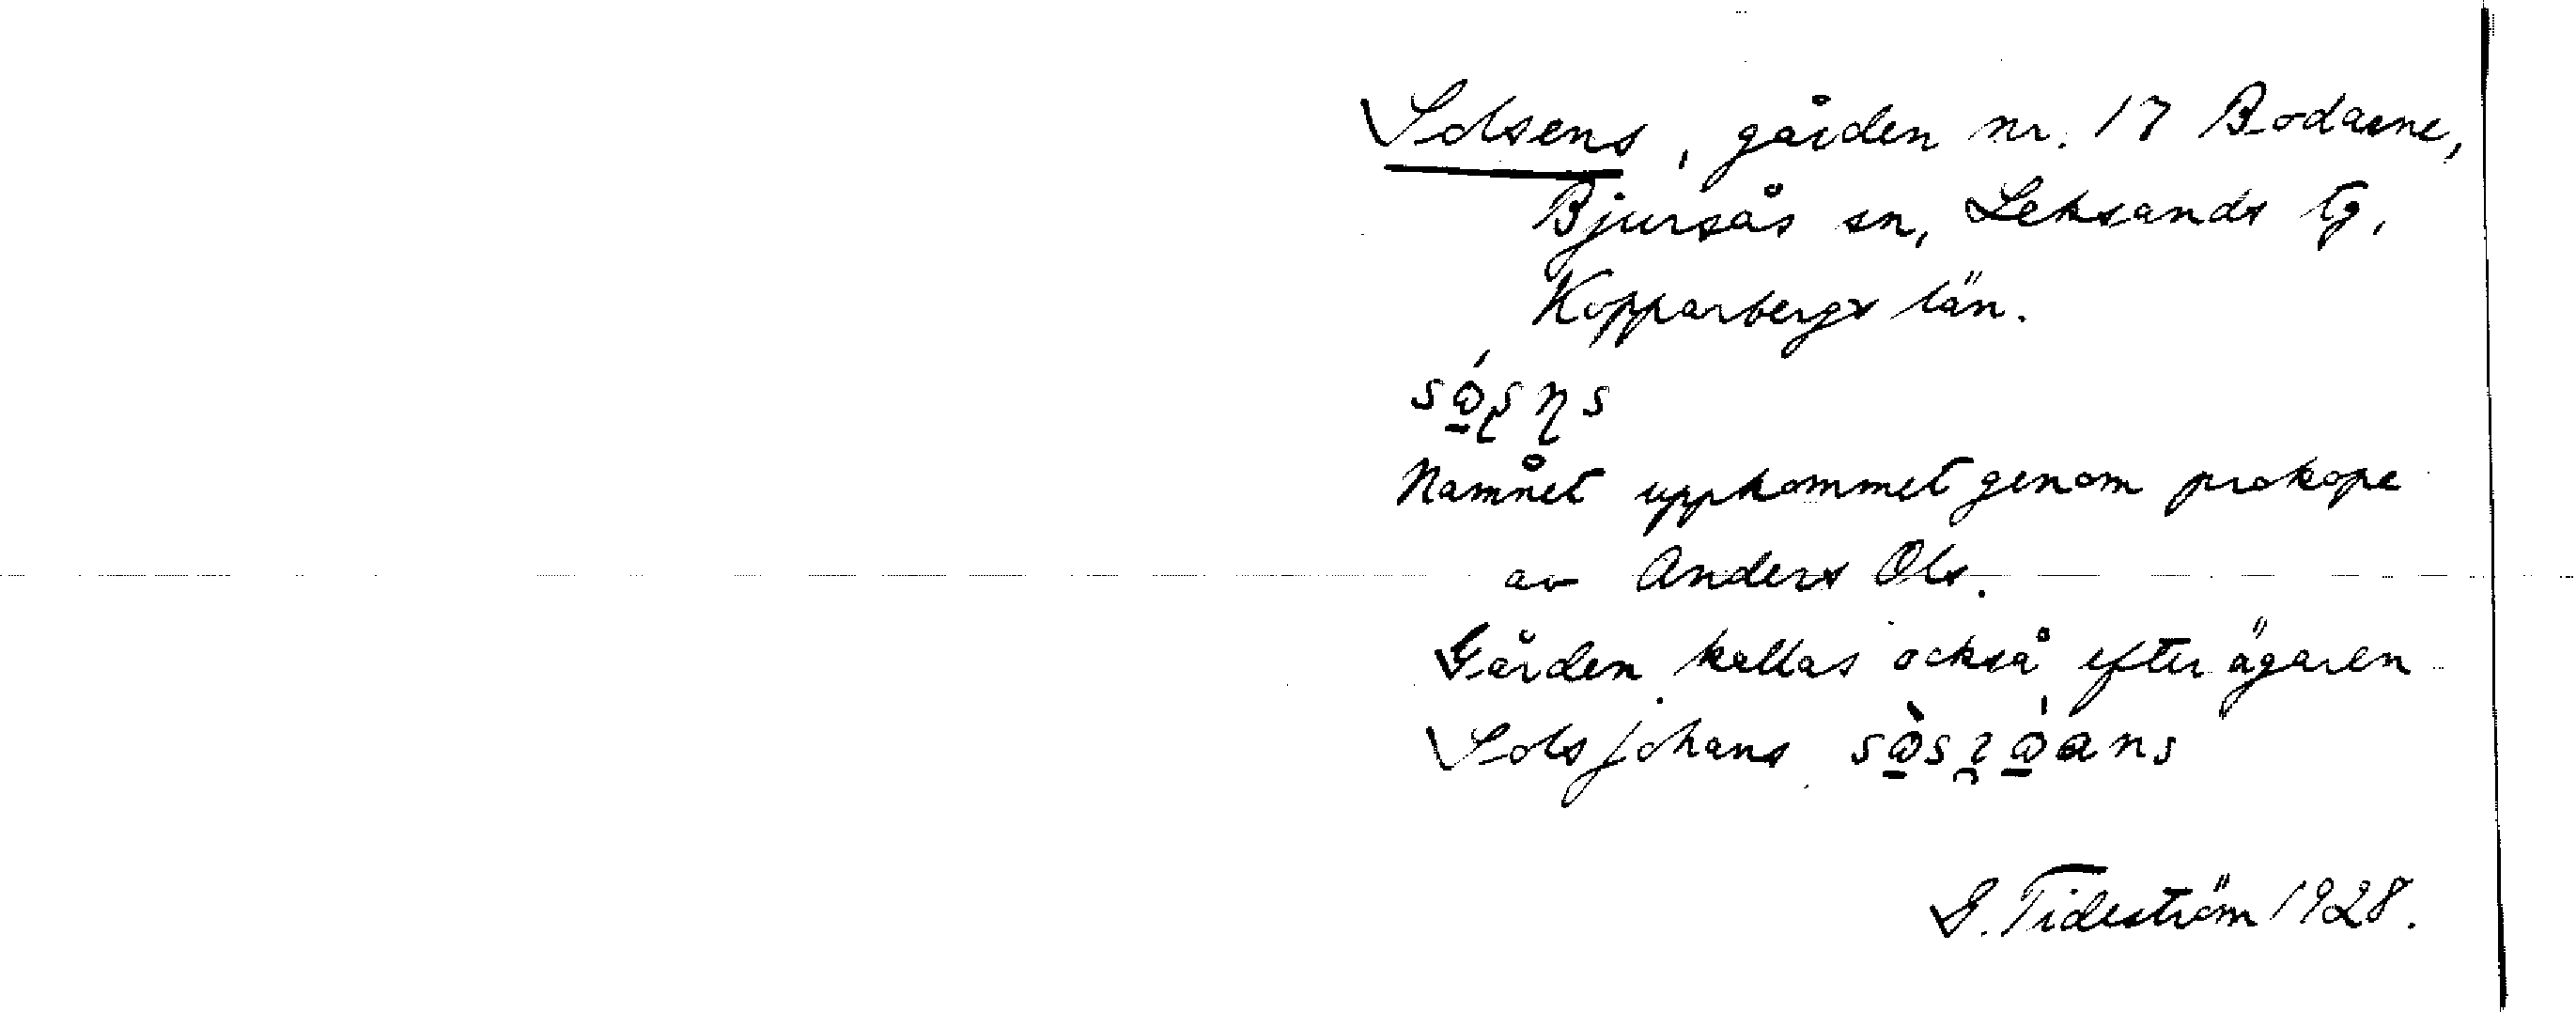 Solsens, gården nr. 17 Bodarne,
Bjursås sn, Leksands tg,
Kopparbergs län.
Namnet uppkommet genom prokope
av Anders Ols.
Gården kallas också efter ägaren
Solsjohans
G. Tideström 1928.